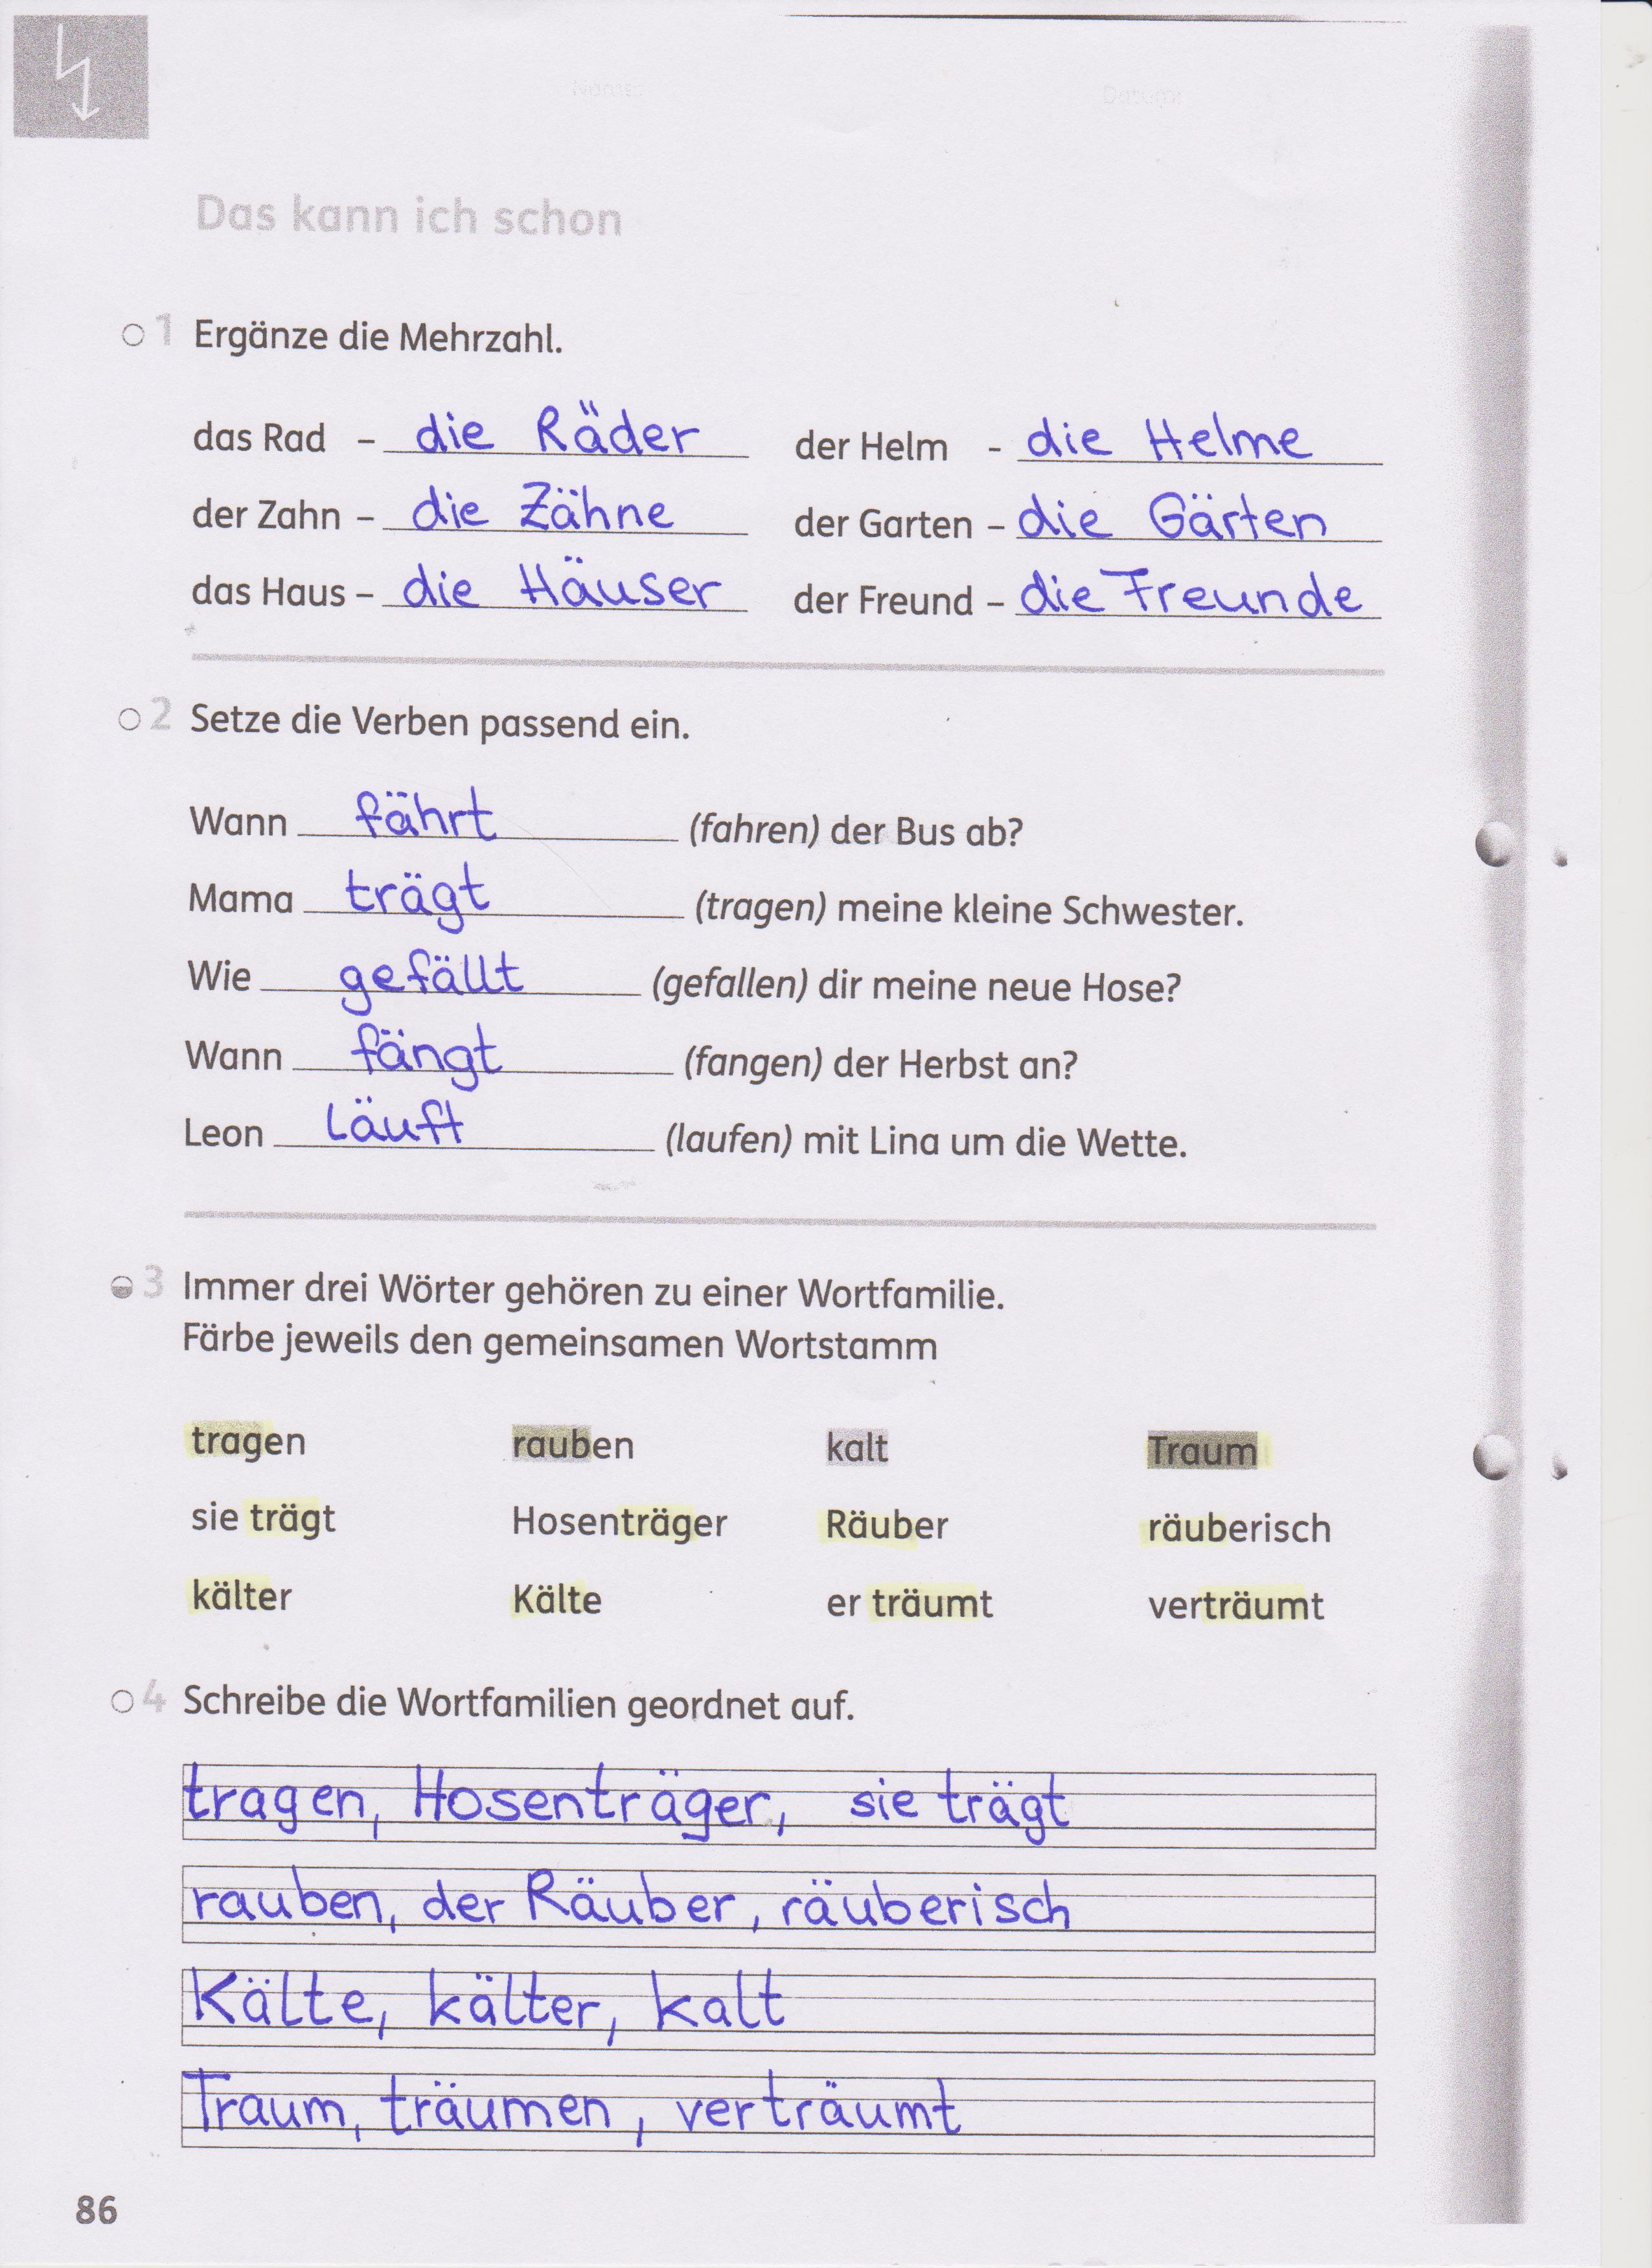 Name:
Datum:
Das kann ich schon
1 Ergänze die Mehrzahl.
das Rad – die Räder der Helm - die Helme
der Zahn – die Zähne der Garten – die Gärten
das Haus – die Häuser der Freund – die Freunde
2 Setze die Verben passend ein.
Wann fährt (fahren) der Bus ab?
Mama trägt (tragen) meine kleine Schwester.
Wie gefällt (gefallen) dir meine neue Hose?
Wann fängt (fangen) der Herbst an?
Leon läuft (laufen) mit Lina um die Wette.
3 Immer drei Wörter gehören zu einer Wortfamilie.
Färbe jeweils den gemeinsamen Wortstamm
tragen rauben kalt Traum
sie trägt Hosenträger Räuber räuberisch
kälter Kälte er träumt verträumt
4 Schreibe die Wortfamilien geordnet auf.
tragen, Hosenträger, sie trägt
rauben, der Räuber, räuberisch
Kälte, kälter, kalt
Traum, träumen, verträumt
86